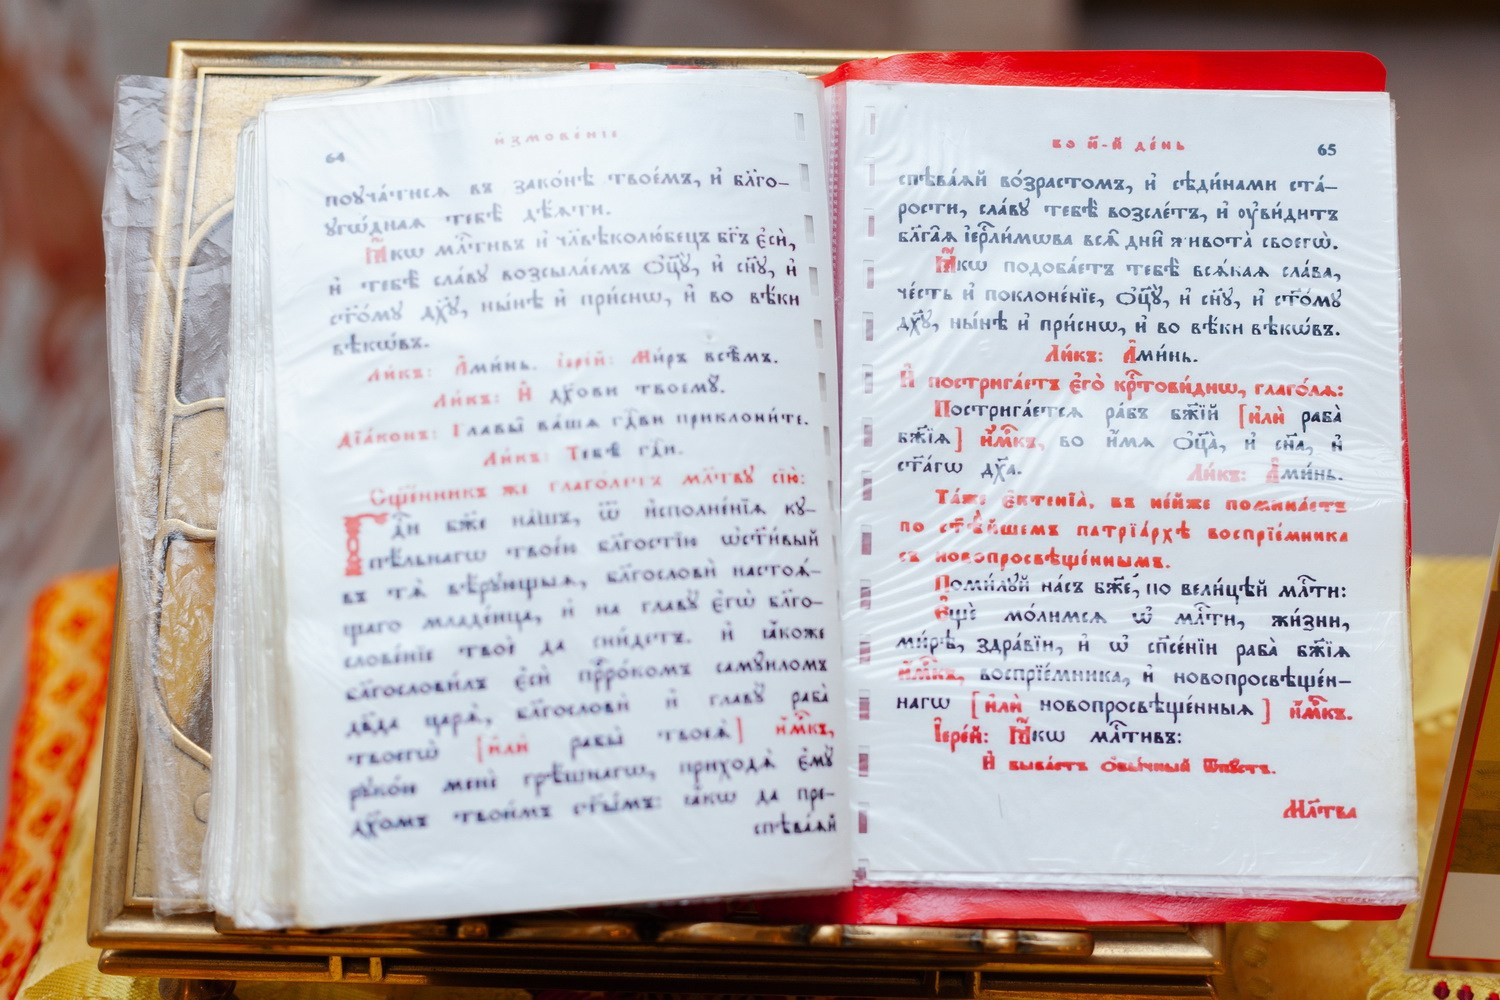 64
и҆змове́нїе
поꙋча́тисѧ въ зако́нѣ твое́мъ, и҆ бл҃го-
ᲂу҆гѡ́днаѧ тебѣ̀ дѣ́ѧти.
Ꙗ҆́кѡ млⷭ҇тивъ и҆ чл҃вѣколю́бецъ бг҃ъ є҆сѝ,
и҆ тебѣ̀ сла́вꙋ возсыла́емъ Ѻ҆ц҃ꙋ̀, и҆ сн҃ꙋ, и҆
ст҃о́мꙋ дх҃ꙋ, ны́нѣ и҆ при́снѡ, и҆ во вѣ́ки
вѣкѡ́въ.
Ли́къ: А҆ми́нь. І҆ере́й: Ми́ръ всѣ̑мъ.
Ли́къ: И҆ дꙋ́хови твоемꙋ̀.
Дїа́конъ: Главы̑ ва́шѧ гдⷭ҇ви приклони́те.
Ли́къ: Тебѣ̀ гдⷭ҇и.
Сщ҃е́нникъ же глаго́летъ мл҃твꙋ сїю̀:
Гдⷭ҇и бж҃е на́шъ, ѿ и҆сполне́нїѧ кꙋ-
пѣ́льнагѡ твоє́ю бл҃гостїю ѡ҆ст҃и́вый
въ тѧ̀ вѣ́рꙋющыѧ, бл҃гословѝ настоѧ́-
щаго младе́нца, и҆ на главꙋ̀ є҆гѡ̀ бл҃го-
слове́нїе твоѐ да сни́детъ. и҆ ꙗ҆́коже
бл҃гослови́лъ є҆сѝ прⷪ҇ро́комъ самꙋи́ломъ
дв҃да царѧ̀, бл҃гословѝ и҆ главꙋ̀ раба̀
твоегѡ̀ [и҆лѝ рабы̀ твоеѧ̀] и҆́м︮к︯ъ,
рꙋко́ю менѐ грѣ́шнагѡ, приходѧ̀ є҆мꙋ̀
дх҃омъ твои́мъ ст҃ы́мъ: ꙗ҆́кѡ да пре-
спѣва́ѧй
во и҃-й де́нь
65
спѣва́ѧй во́зрастомъ, и҆ сѣди́нами ста́-
рости, сла́вꙋ тебѣ̀ возсле́тъ, и҆ ᲂу҆ви́дитъ
бл҃га̑ѧ і҆ерⷭ҇ли́мѡва всѧ̑ дни̑ живота̀ своегѡ̀.
Ꙗ҆́кѡ подоба́етъ тебѣ̀ всѧ́каѧ сла́ва,
че́сть и҆ поклоне́нїе, Ѻ҆ц҃ꙋ̀, и҆ сн҃ꙋ, и҆ ст҃о́мꙋ
дх҃ꙋ, ны́нѣ и҆ при́снѡ, и҆ во вѣ́ки вѣкѡ́въ.
Ли́къ: А҆ми́нь.
И҆ пострига́етъ є҆го̀ крⷭ҇тови́днѡ, глаго́лѧ:
Постриgáетсѧ ра́бъ бж҃їй [и҆лѝ раба̀
бж҃їѧ] и҆́м︮к︯ъ, во и҆́мѧ Ѻ҆ц҃а̀, и҆ сн҃а, и҆
ст҃а́гѡ дх҃а. Ли́къ: А҆ми́нь.
Та́же є҆ктенїа̀, въ не́йже помина́етъ
по ст҃ѣ́йшемъ патрїа́рхѣ воспрїе́мника
съ новопросвѣще́ннымъ.
Поми́лꙋй на́съ бж҃е, по вели́цѣй млⷭ҇ти:
Є҆щѐ мо́лимсѧ ѡ҆ млⷭ҇ти, жи́зни,
ми́рѣ, здра́вїи, и҆ ѡ҆ сп҃се́нїи раба̀ бж҃їѧ
и҆́м︮к︯ъ, воспрїе́мника, и҆ новопросвѣще́н-
нагѡ [и҆лѝ новопросвѣще́нныѧ] и҆́м︮к︯ъ.
І҆ере́й: Ꙗ҆́кѡ млⷭ҇тивъ:
И҆ быва́етъ ѻ҆бы́чный ѿпꙋ́стъ.
Мл҃тва